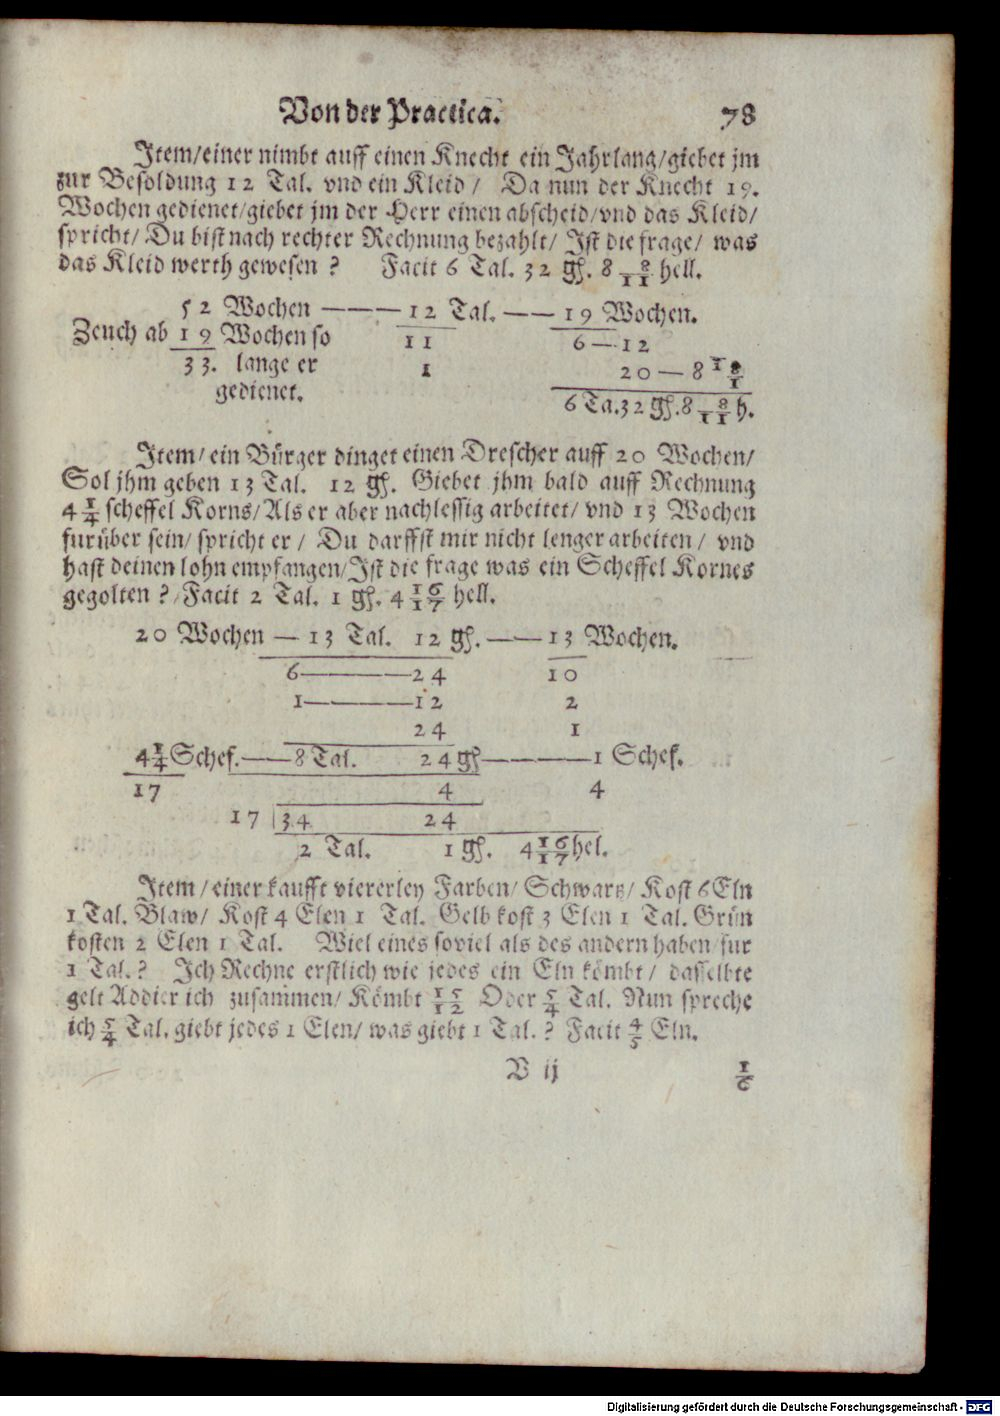 Von der Practica. 78
Item/einer nimbt auff einen Knecht ein Jahrlang/giebet jm
zur Besoldung 12 Tal. vnd ein Kleid / Da nun der Knecht 19.
Wochen gedienet/giebet jm der Herr einen abscheid/vnd das Kleid/
spricht/ Du bist nach rechter Rechnung bezahlt/ Ist die frage/ was
das Kleid werth gewesen ? Facit 6 Tal. 32 gℏ. 8 8/11 hell.
52 Wochen ——— 12 Tal. —— 19 Wochen.
Zeuch ab 19 Wochen so 11 6—12
33. lange er 1 20—8 1 8/1
gedienet. 6 Ta.32 gℏ.8 8/11 h.
Item/ ein Bürger dinget einen Drescher auff 20 Wochen/
Sol jhm geben 13 Tal. 12 gℏ. Giebet jhm bald auff Rechnung
4 1/4 scheffel Korns/Als er aber nachlessig arbeitet/ vnd 13 Wochen
furüber sein/ spricht er / Du darffst mir nicht lenger arbeiten / vnd
hast deinen lohn empfangen/Ist die frage was ein Scheffel Kornes
gegolten ? Facit 2 Tal. 1 gℏ. 4 16/17 hell.
20 Wochen — 13 Tal. 12 gℏ. —— 13 Wochen.
6————24 10
1————12 2
24 1
4 1/4 Schef.——8 Tal. 24 gℏ————1 Schef.
17 4 4
17 |34 24
2 Tal. 1 gℏ. 4 16/17 hel.
Item / einer kaufft viererley Farben/ Schwartz/ Kost 6 Eln
1 Tal. Blaw/ Kost 4 Elen 1 Tal. Gelb kost 3 Elen 1 Tal. Grün
kosten 2 Elen 1 Tal. Wiel eines soviel als des andern haben fur
1 Tal. ? Ich Rechne erstlich wie jedes ein Eln kömbt / dasselbte
gelt Addier ich zusammen/ Kömbt 15/12 Oder 5/4 Tal. Nun spreche
ich 5/4 Tal. giebt jedes 1 Elen/ was giebt 1 Tal. ? Facit 4/5 Eln.
V ij 1/6
Digitalisierung gefördert durch die Deutsche Forschungsgemeinschaft - DFG